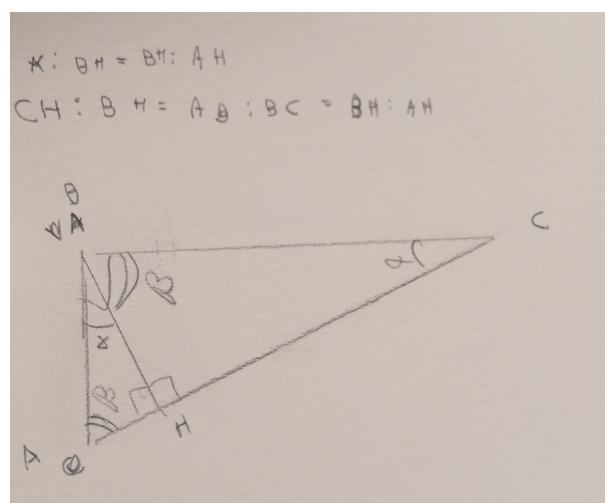 x: BH = BH: AH
CH: BH = AB: BC = BH: AH
B
C
β
α
α
β
H
A